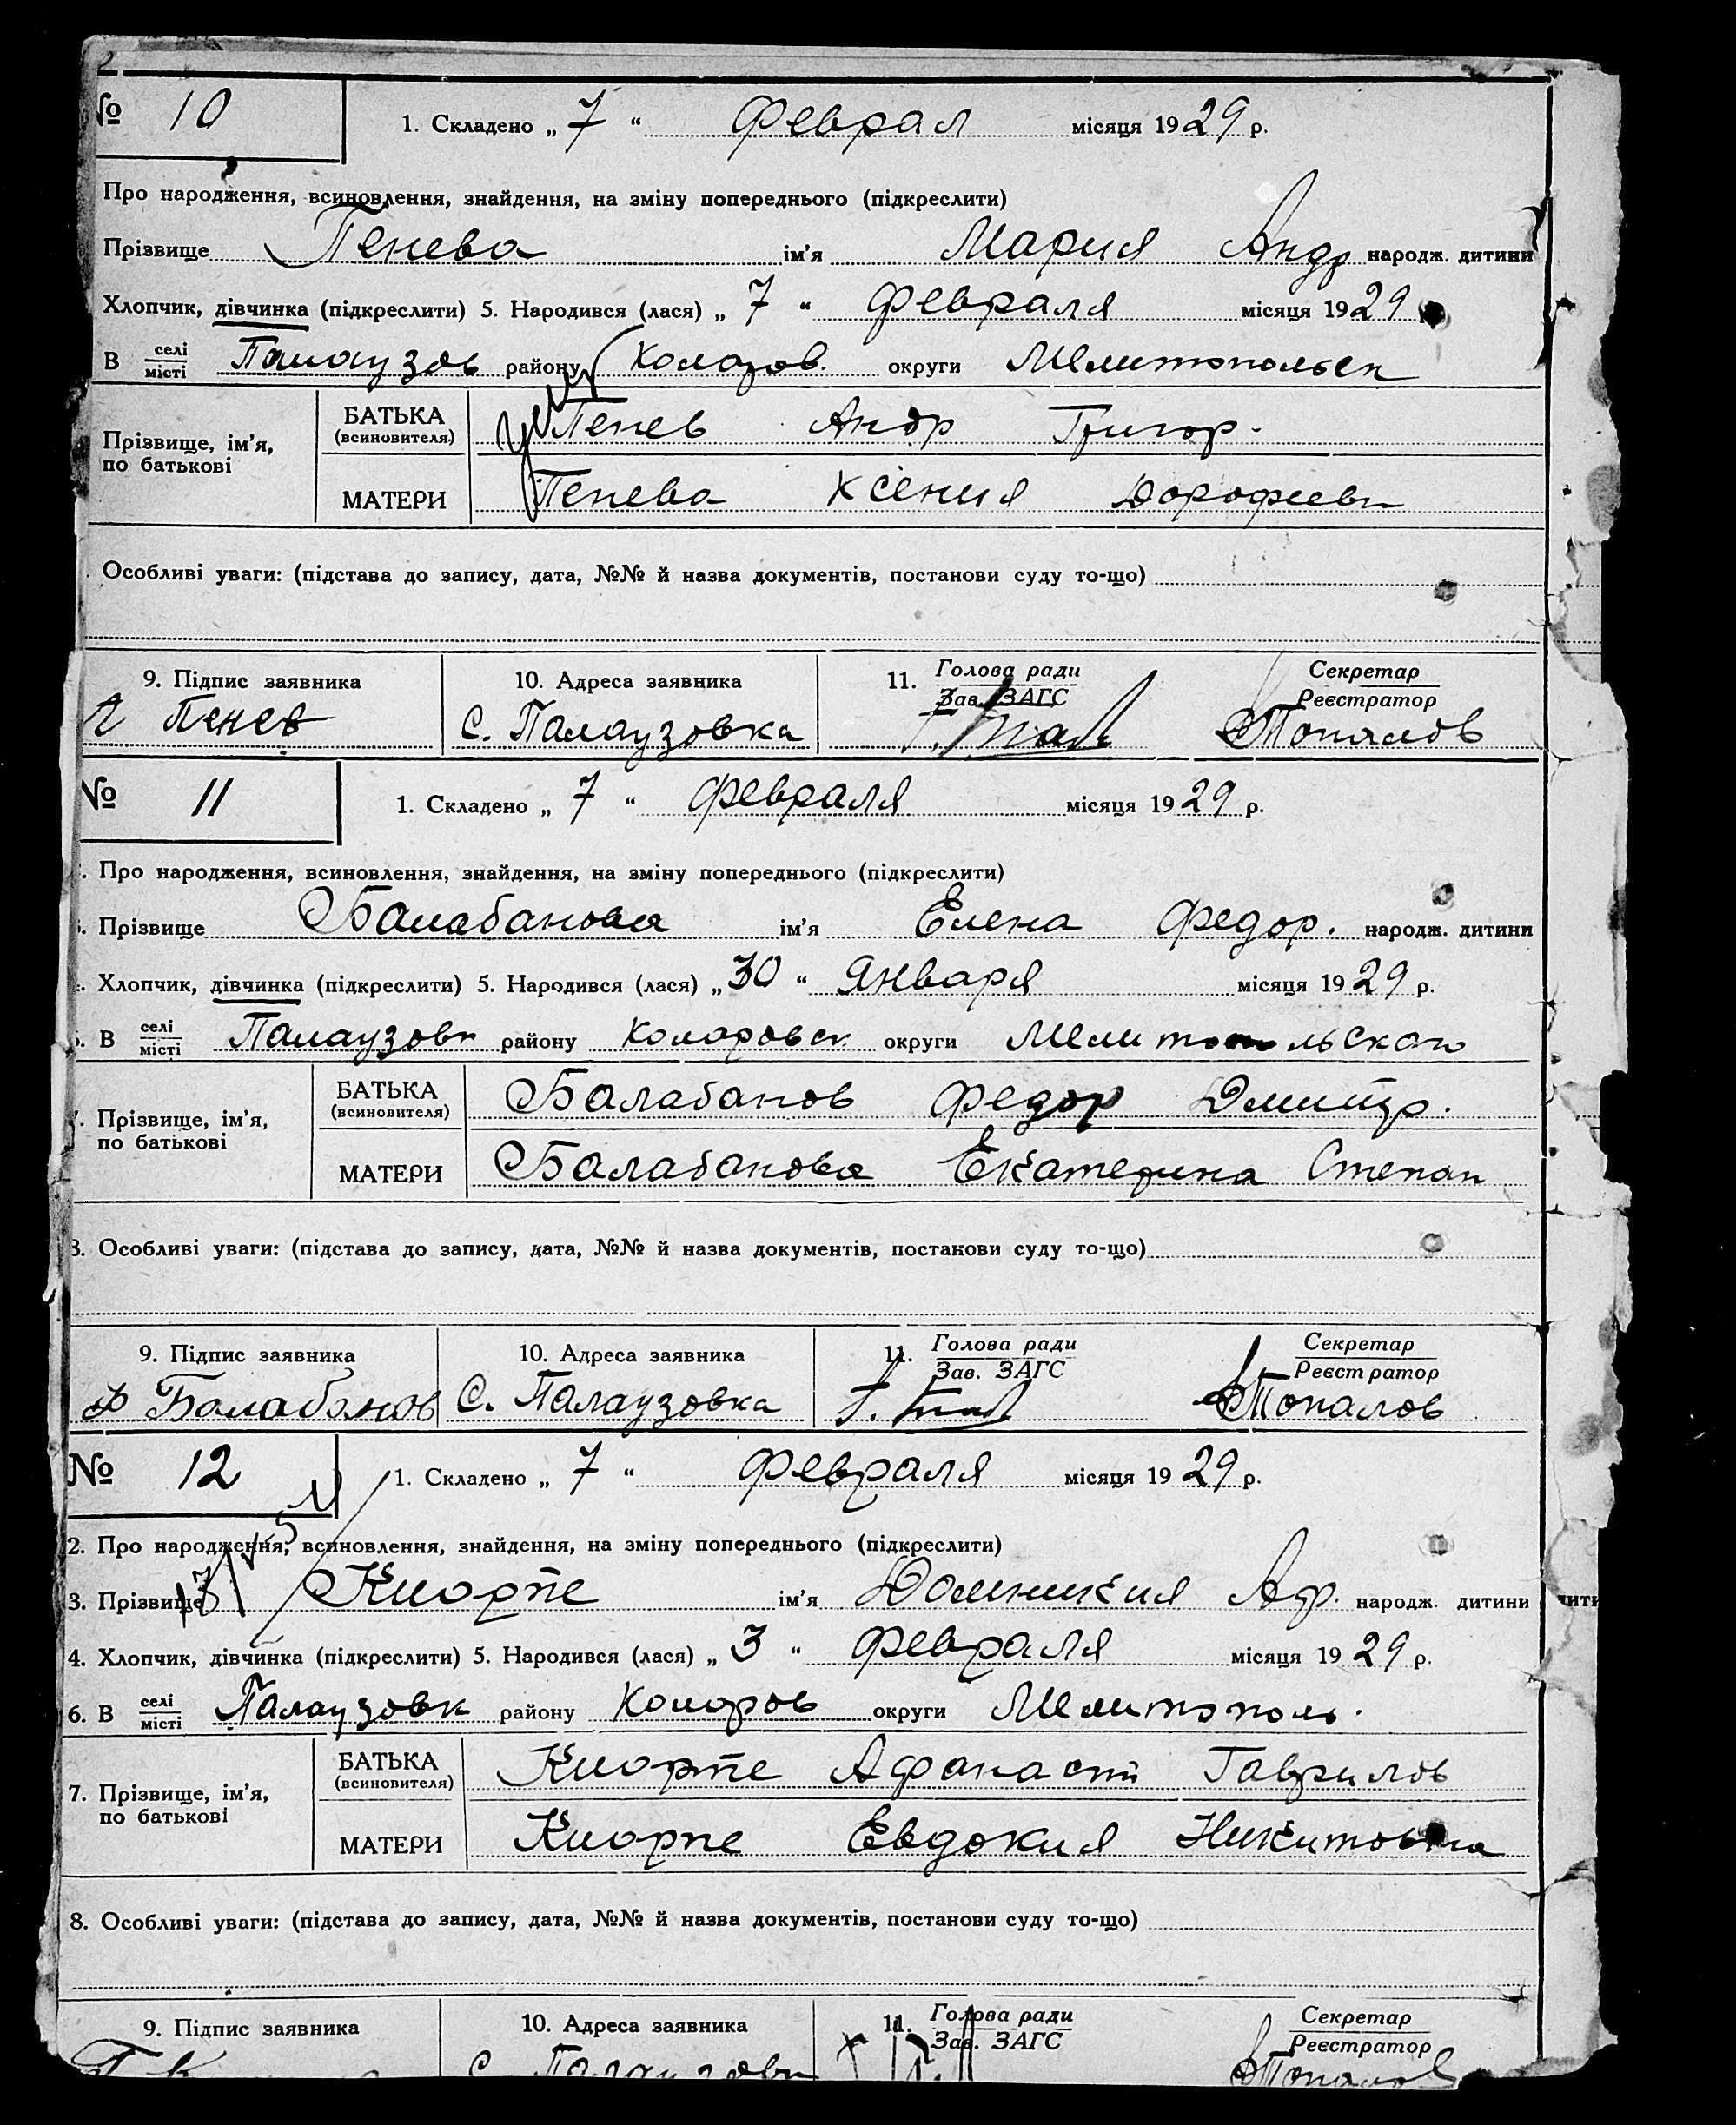 2
№ 10
1. Складено „ 7 “ Феврал місяця 1929 р.
Про народження, всиновлення, знайдення, на зміну попереднього (підкреслити)
Прізвище Пенева ім'я Мария Андр народж. дитини
Хлопчик, дівчинка (підкреслити) 5. Народився (лася) „ 7 “ Февраля місяця 1929
В селі місті Палаузов району Коларов. округи Мелитопольск
Прізвище, ім'я, по батькові
БАТЬКА (всиновителя) Пенев Андр Григор.
МАТЕРИ Пенева Ксения Дорофеевн
Особливі уваги: (підстава до запису, дата, №№ й назва документів, постанови суду то-що)
9. Підпис заявника 10. Адреса заявника 11. Голова ради Зав. ЗАГС Секретар Реєстратор
Пенев С. Палаузовка Топалов
№ 11
1. Складено „ 7 “ Февраля місяця 1929 р.
Про народження, всиновлення, знайдення, на зміну попереднього (підкреслити)
Прізвище Балабанова ім'я Елена Федор. народж. дитини
Хлопчик, дівчинка (підкреслити) 5. Народився (лася) „ 30 “ Января місяця 1929 р.
В селі місті Палаузовк району Коларовск округи Мелитопольского
7. Прізвище, ім'я, по батькові
БАТЬКА (всиновителя) Балабанов Федор Дмитр.
МАТЕРИ Балабанова Екатерина Степан
8. Особливі уваги: (підстава до запису, дата, №№ й назва документів, постанови суду то-що)
9. Підпис заявника 10. Адреса заявника 11. Голова ради Зав. ЗАГС Секретар Реєстратор
Ф Балабанов С. Палаузовка Топалов
№ 12
1. Складено „ 7 “ Февраля місяця 1929 р.
2. Про народження, всиновлення, знайдення, на зміну попереднього (підкреслити)
3. Прізвище Киорпе ім'я Домникия Аф. народж. дитини
4. Хлопчик, дівчинка (підкреслити) 5. Народився (лася) „ 3 “ Февраля місяця 1929 р.
6. В селі місті Палаузовк району Коларов округи Мелитополь.
7. Прізвище, ім'я, по батькові
БАТЬКА (всиновителя) Киорпе Афанасий Гаврилов
МАТЕРИ Киорпе Евдокия Никитовна
8. Особливі уваги: (підстава до запису, дата, №№ й назва документів, постанови суду то-що)
9. Підпис заявника 10. Адреса заявника 11. Голова ради Зав. ЗАГС Секретар Реєстратор
С Палаузовк Топалов